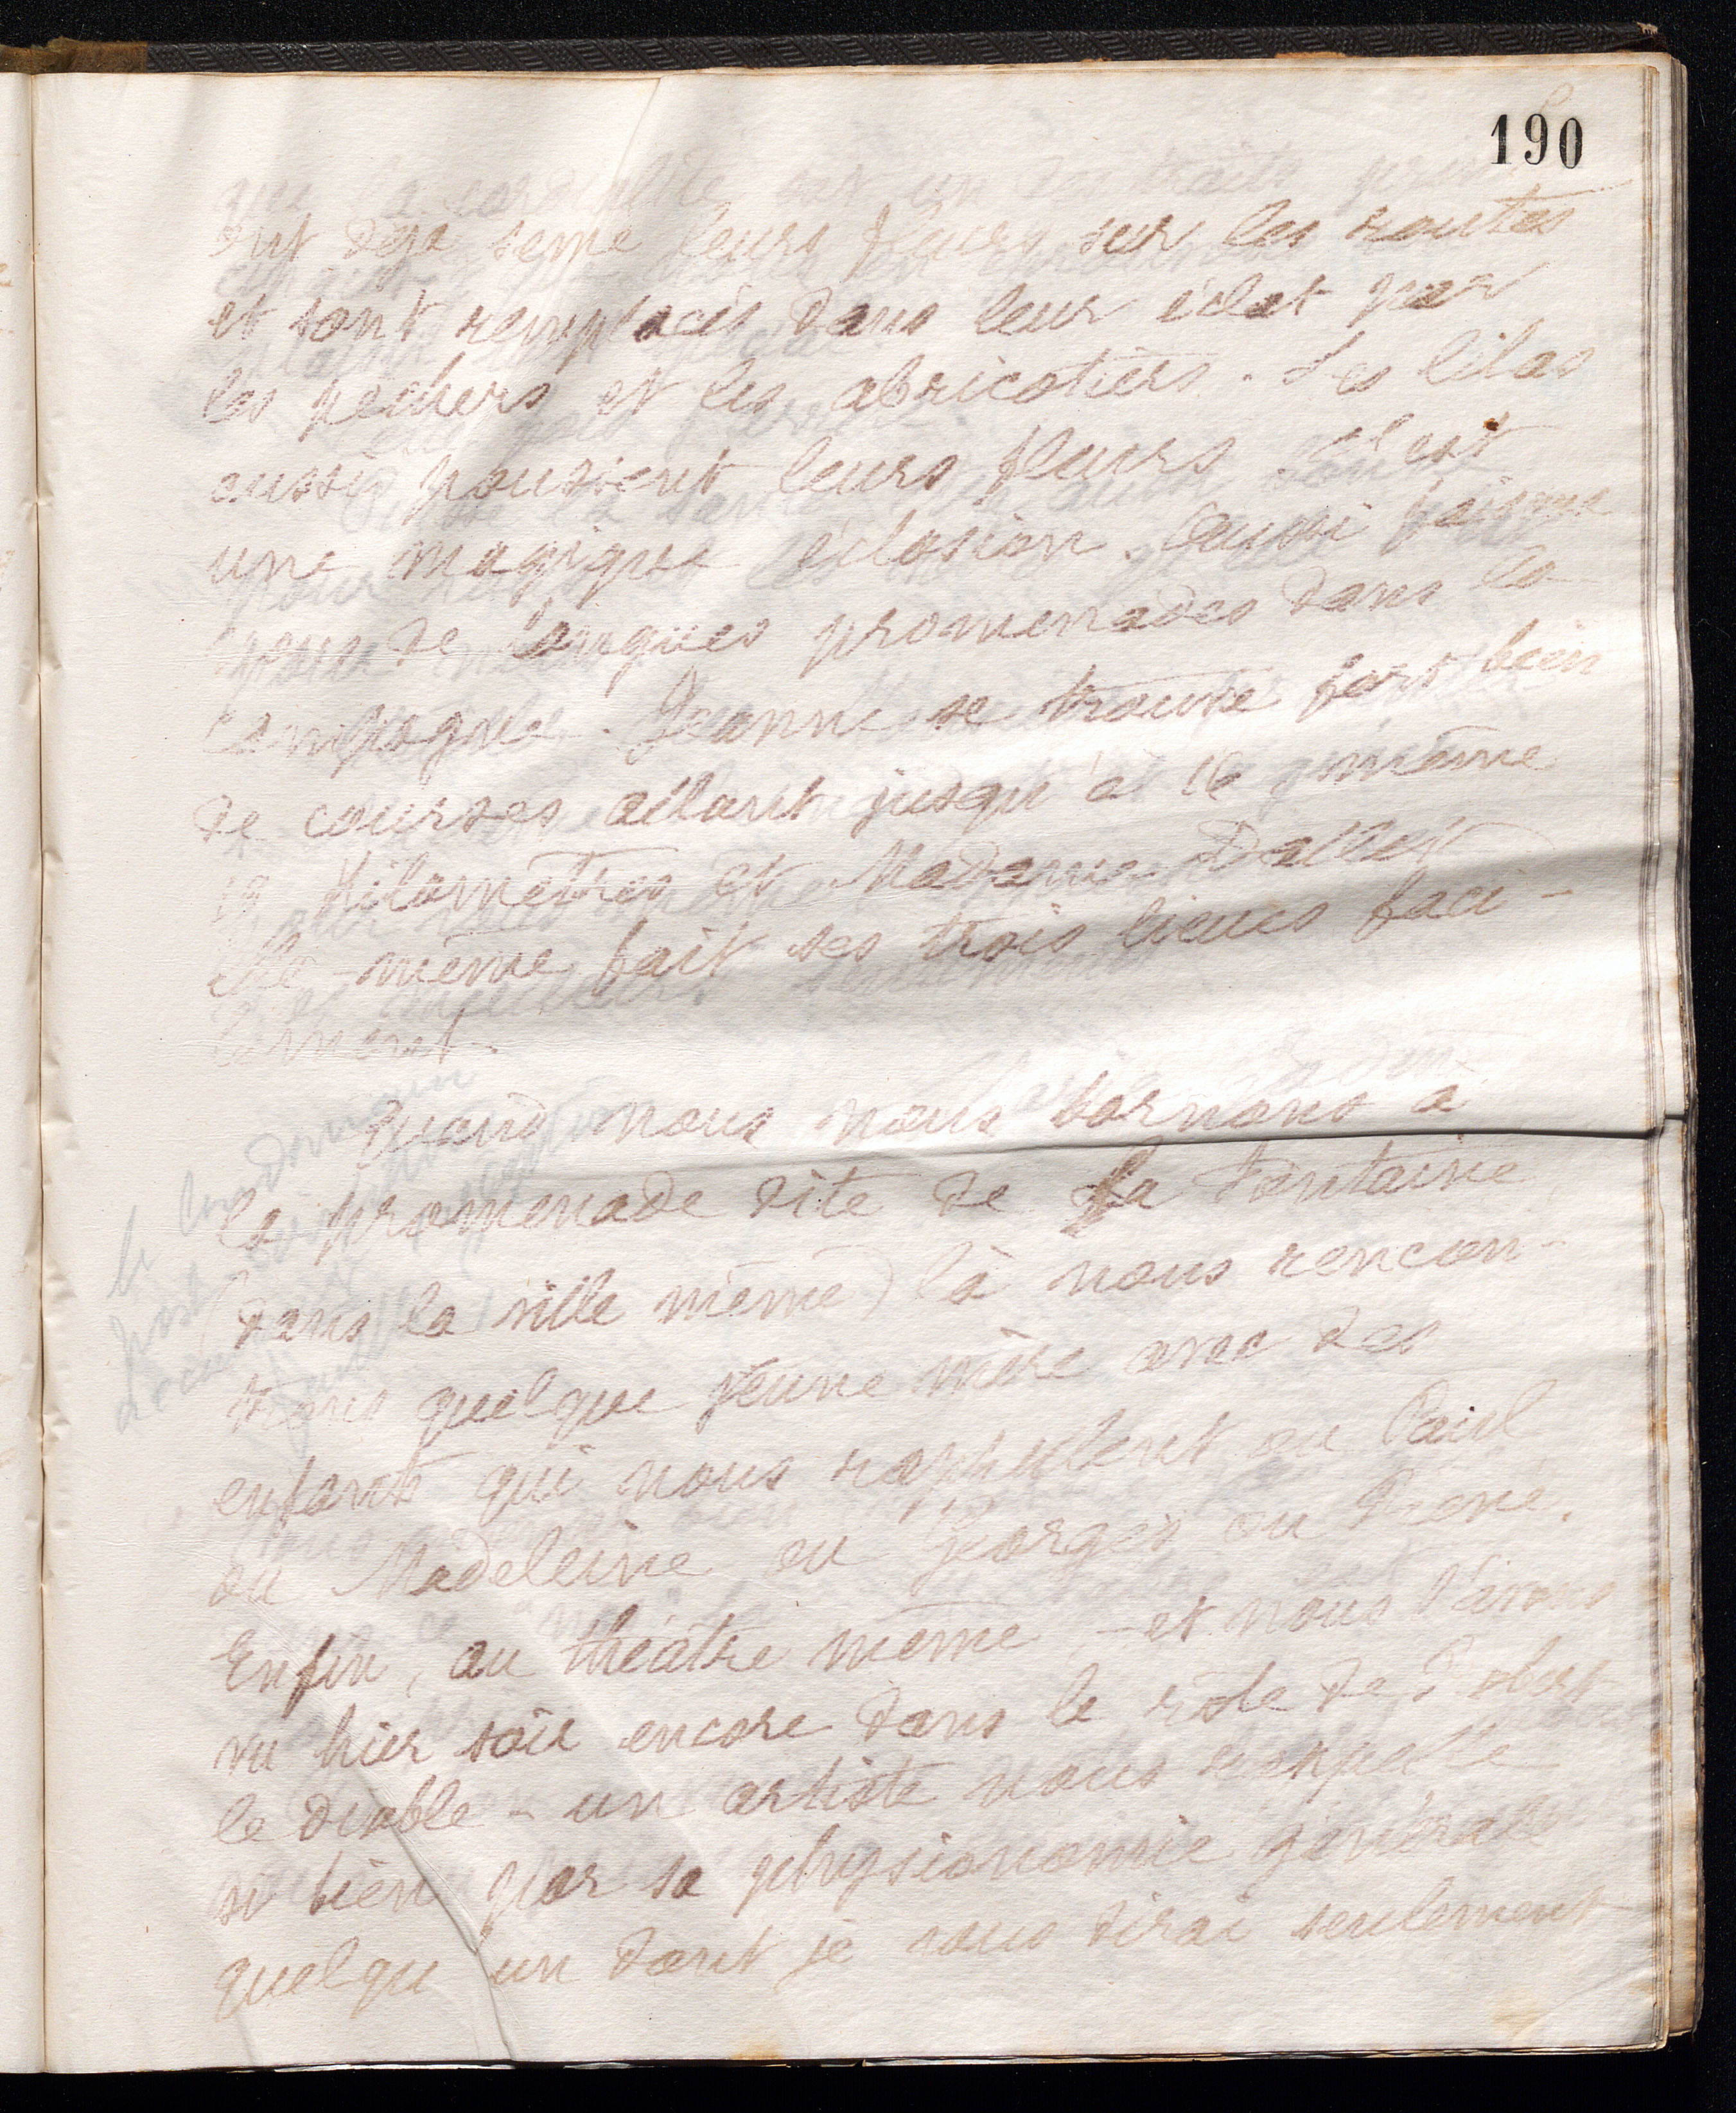 190
ont deja semé leurs fleurs sur les routes
et sont remplacés dans leur éclat par
les pechers et les abricotiers. Les lilas
aussi poussent leurs fleurs. C'est
une magique éclosion. Aussi faisons
nous de longues promenades dans la
campagne. Jeanne se trouve fort bien
de courses allant jusqu'à 16 même
18 Kilomètres et Madame Dallet
elle-même fait ses trois lieues faci-
lement.
Quand nous nous bornons à
la promenade dite de La Fontaine
(dans la ville même) là nous rencon-
trons quelque jeune mère avec des
enfants qui nous rappellent ou Paul
ou Madeleine ou Georges ou René.
Enfin, au théatre même – et nous l'avons
vu hier soir encore dans le rôle de Robert
le diable – un artiste nous rappelle
si bien par sa physionomie générale
quelqu'un dont je vous dirai seulement